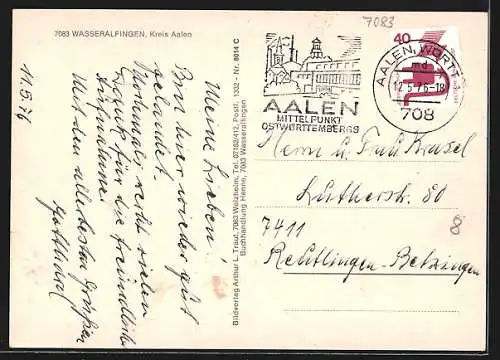 7083 WASSERALFINGEN, Kreis Aalen
11.5.76
Meine Lieben!
Bin hier wieder gut
gelandet.
Nochmals recht vielen
Dank für die freundliche
Aufnahme.
Mit den allerbesten Grüßen
Bildverlag Arthur L. Traut, 7063 Welzheim, Tel. 07182/412, Postf. 1332 - Nr. 8614 C
Buchhandlung Henne, 7083 Wasseralfingen
7083
40
AALEN
MITTELPUNKT
OSTWÜRTTEMBERGS
AALEN, WÜRTT
md
12.5.76-18
708
Herrn u. Frau
Lutherstr. 80
7411
Reutlingen-Betzingen
8